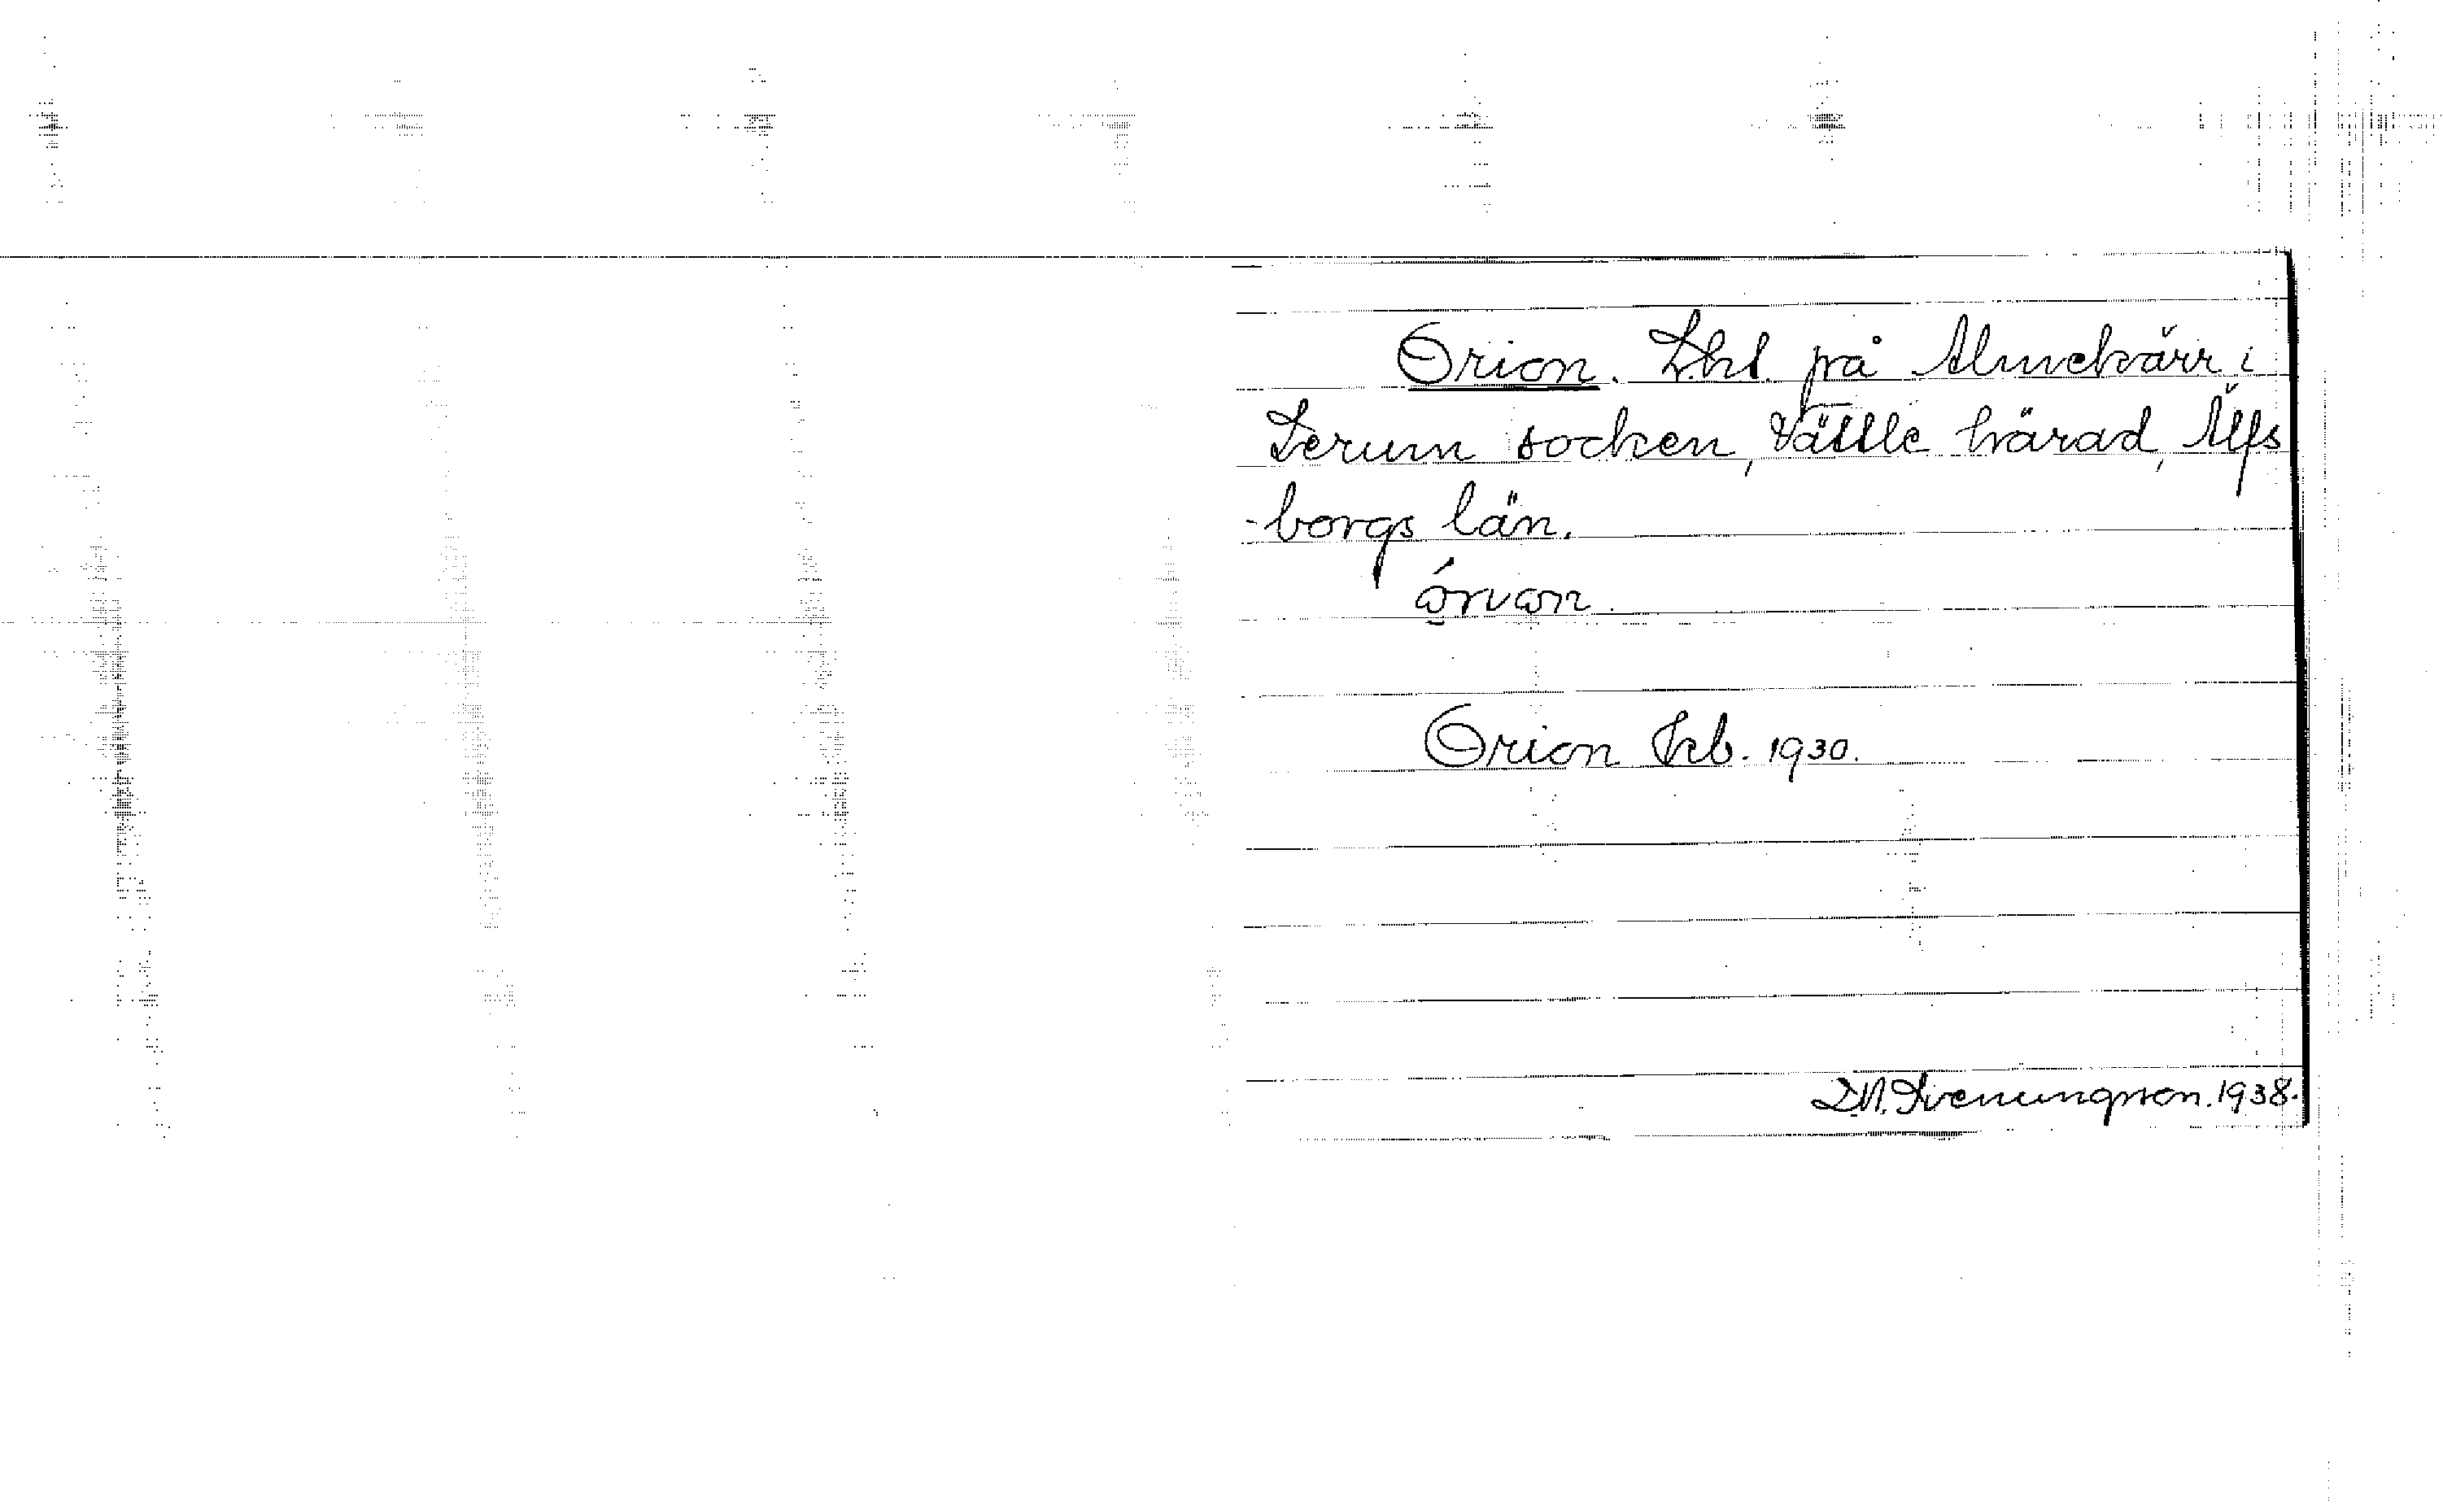 Orion. Lht. på Almekärr i
Lerum socken, Vättle härad, Älfs
-borgs län.
órvon.
Orion Kb. 1930.
D.N. Svenungsson. 1938.